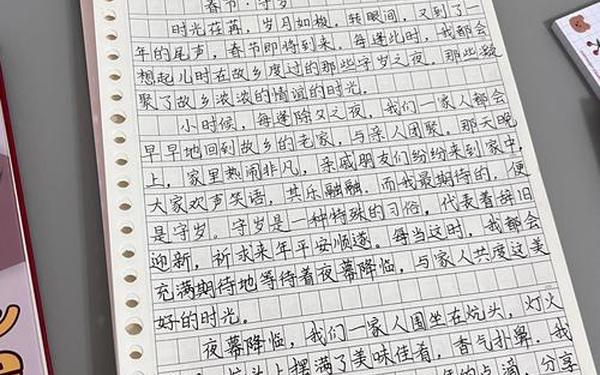 春节·守岁
时光荏苒，岁月如梭。转眼间，又到了一
年的尾声，春节即将到来。每逢此时，我都会
想起儿时在故乡度过的那些守岁之夜。那些凝
聚了故乡浓浓的情谊的时光。
小时候，每逢除夕之夜，我们一家人都会
早早地回到故乡的老家，与亲人团聚。那天晚
上，家里热闹非凡，亲戚朋友们纷纷来到家中，
大家欢声笑语，其乐融融。而我最期待的，便
是守岁。守岁是一种特殊的习俗，代表着辞旧
迎新，祈求来年平安顺遂。每当这时，我都会
充满期待地等待着夜幕降临，与家人共度这美
好的时光。
夜幕降临，我们一家人围坐在炕头，灯火
炕头上摆满了美味佳肴，香气扑鼻。我
年的点滴，分享